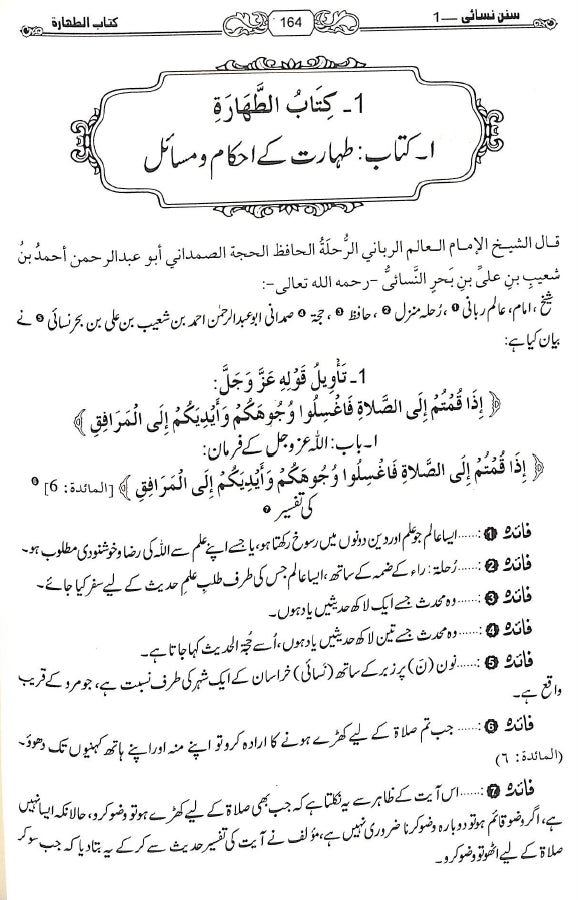 سنن نسائی — 1
164
کتاب الطهارة
1- كِتَابُ الطَّهَارَةِ
۱- کتاب: طہارت کے احکام ومسائل
قال الشيخ الإمام العالم الرباني الرُّحلَةُ الحافظ الحجة الصمداني أبو عبدالرحمن أحمدُ بنُ
شعيبِ بنِ عليِّ بنِ بَحرِ النَّسائيُّ -رحمه الله تعالى-:
شیخ، امام، عالم ربانی ❶، رُحلہ منزل ❷، حافظ ❸، حجۃ ❹ صمدانی ابوعبدالرحمٰن احمد بن شعیب بن علی بن بحر نسائی ❺ نے
بیان کیا ہے:
1- تَأْوِيلُ قَوْلِهِ عَزَّ وَجَلَّ:
﴿ إِذَا قُمْتُمْ إِلَى الصَّلاةِ فَاغْسِلُوا وُجُوهَكُمْ وَأَيْدِيَكُمْ إِلَى الْمَرَافِقِ ﴾
۱- باب: اللہ عزوجل کے فرمان:
﴿ إِذَا قُمْتُمْ إِلَى الصَّلاةِ فَاغْسِلُوا وُجُوهَكُمْ وَأَيْدِيَكُمْ إِلَى الْمَرَافِقِ ﴾ [المائدة: 6] ❻
کی تفسیر ❼
فائدہ ❶ :...... ایسا عالم جو علم اور دین دونوں میں رسوخ رکھتا ہو، یا جسے اپنے علم سے اللہ کی رضا وخوشنودی مطلوب ہو۔
فائدہ ❷ :...... رُحلۃ: راء کے ضمہ کے ساتھ، ایسا عالم جس کی طرف طلبِ علمِ حدیث کے لیے سفر کیا جائے۔
فائدہ ❸ :...... وہ محدث جسے ایک لاکھ حدیثیں یاد ہوں۔
فائدہ ❹ :...... وہ محدث جسے تین لاکھ حدیثیں یاد ہوں، اُسے حُجۃ الحدیث کہا جاتا ہے۔
فائدہ ❺ :...... نون (نَ) پر زبر کے ساتھ (نَسائی) خراسان کے ایک شہر کی طرف نسبت ہے، جو مرو کے قریب
واقع ہے۔
فائدہ ❻ :...... جب تم صلاۃ کے لیے کھڑے ہونے کا ارادہ کرو تو اپنے منہ اور اپنے ہاتھ کہنیوں تک دھوؤ۔
(المائدة: ٦)
فائدہ ❼ :...... اس آیت کے ظاہر سے یہ نکلتا ہے کہ جب بھی صلاۃ کے لیے کھڑے ہو تو وضو کرو، حالانکہ ایسا نہیں
ہے، اگر وضو قائم ہو تو دوبارہ وضو کرنا ضروری نہیں ہے، مؤلف نے آیت کی تفسیر حدیث سے کر کے یہ بتا دیا کہ جب سو کر
صلاۃ کے لیے اٹھو تو وضو کرو۔